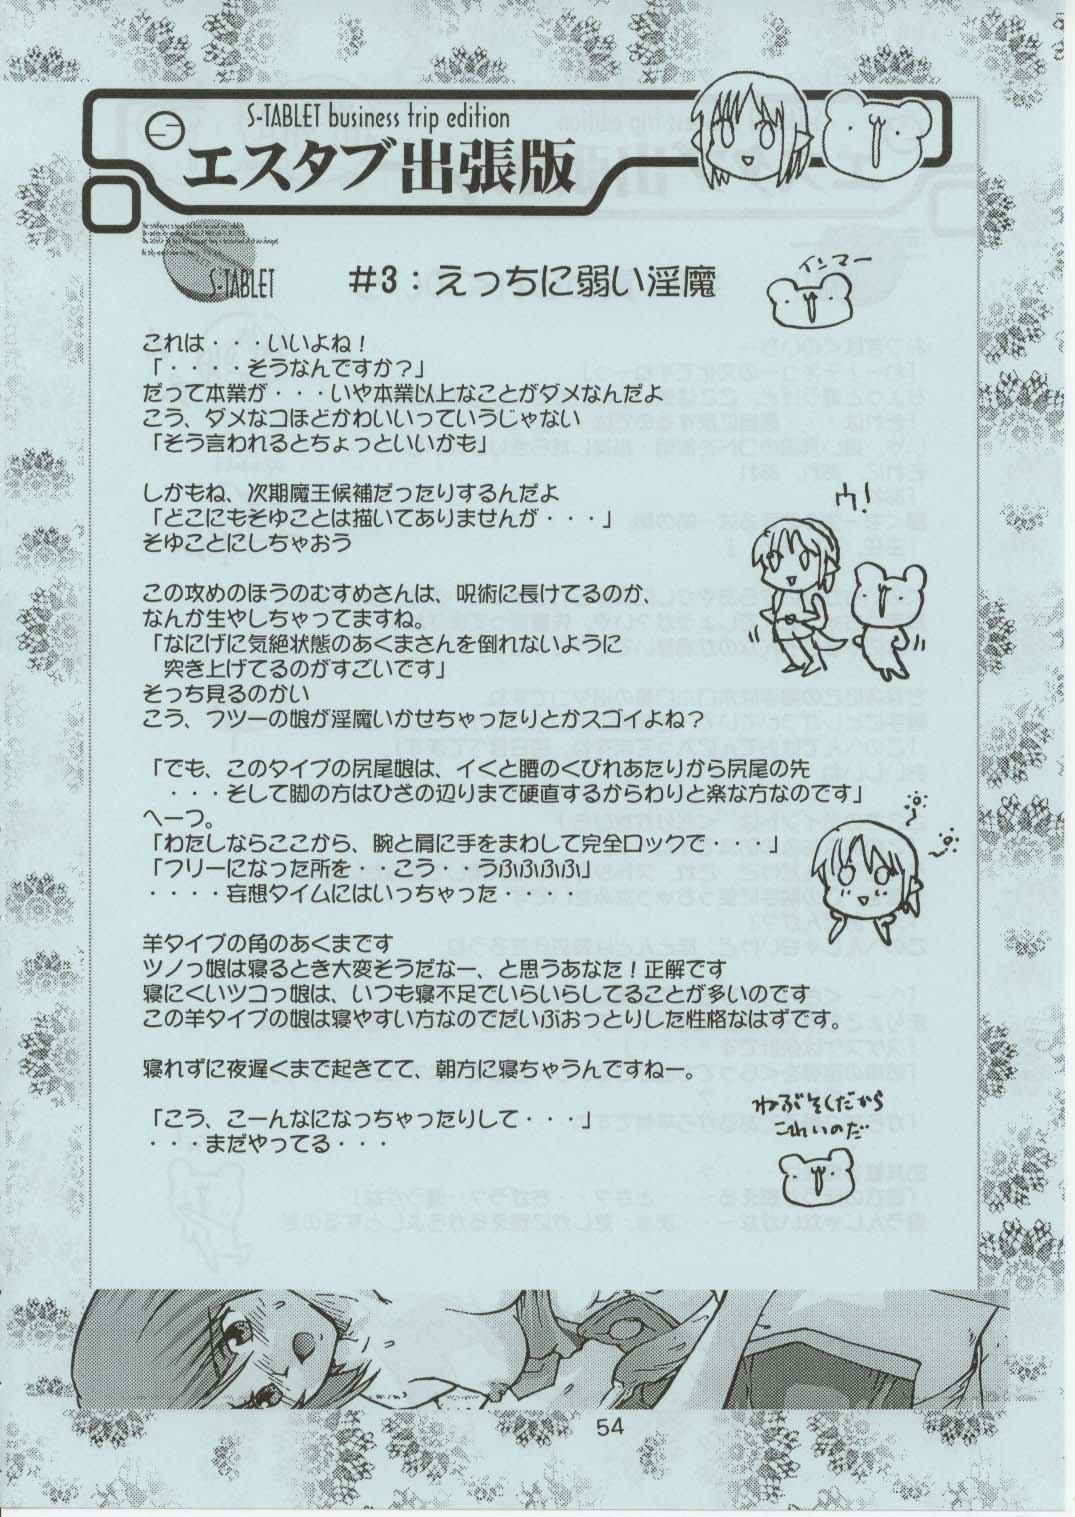 S-TABLET business trip edition
エスタブ出張版
S-TABLET
#3：えっちに弱い淫魔
インマー
これは・・・いいよね！
「・・・・そうなんですか？」
だって本業が・・・いや本業以上なことがダメなんだよ
こう、ダメなコほどかわいいっていうじゃない
「そう言われるとちょっといいかも」
しかもね、次期魔王候補だったりするんだよ
「どこにもそゆことは描いてありませんが・・・」
そゆことにしちゃおう
ウ！
この攻めのほうのむすめさんは、呪術に長けてるのか、
なんか生やしちゃってますね。
「なにげに気絶状態のあくまさんを倒れないように
突き上げてるのがすごいです」
そっち見るのかい
こう、フツーの娘が淫魔いかせちゃったりとかスゴイよね？
「でも、このタイプの尻尾娘は、イくと腰のくびれあたりから尻尾の先
・・・そして脚の方はひざの辺りまで硬直するからわりと楽な方なのです」
へーつ。
「わたしならここから、腕と肩に手をまわして完全ロックで・・・」
「フリーになった所を・・こう・・うふふふふ」
・・・・妄想タイムにはいっちゃった・・・・
羊タイプの角のあくまです
ツノっ娘は寝るとき大変そうだなー、と思うあなた！正解です
寝にくいツコっ娘は、いつも寝不足でいらいらしてることが多いのです
この羊タイプの娘は寝やすい方なのでだいぶおっとりした性格なはずです。
寝れずに夜遅くまで起きてて、朝方に寝ちゃうんですねー。
「こう、こーんなになっちゃったりして・・・」
・・・まだやってる・・・
ねぶそくだから
これいのだ
54